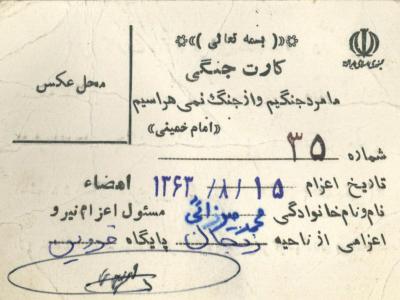 «( بسمه تعالی )»
جمهوری اسلامی ایران
کارت جنگی
محل عکس
ما مرد جنگیم و از جنگ نمی هراسیم
«امام خمینی»
شماره ۳۵
تاریخ اعزام ۱۳۶۳/۸/۱۵ امضاء
نام و نام خانوادگی محمد میرزائی مسئول اعزام نیرو
اعزامی از ناحیه زنجان پایگاه قزوین